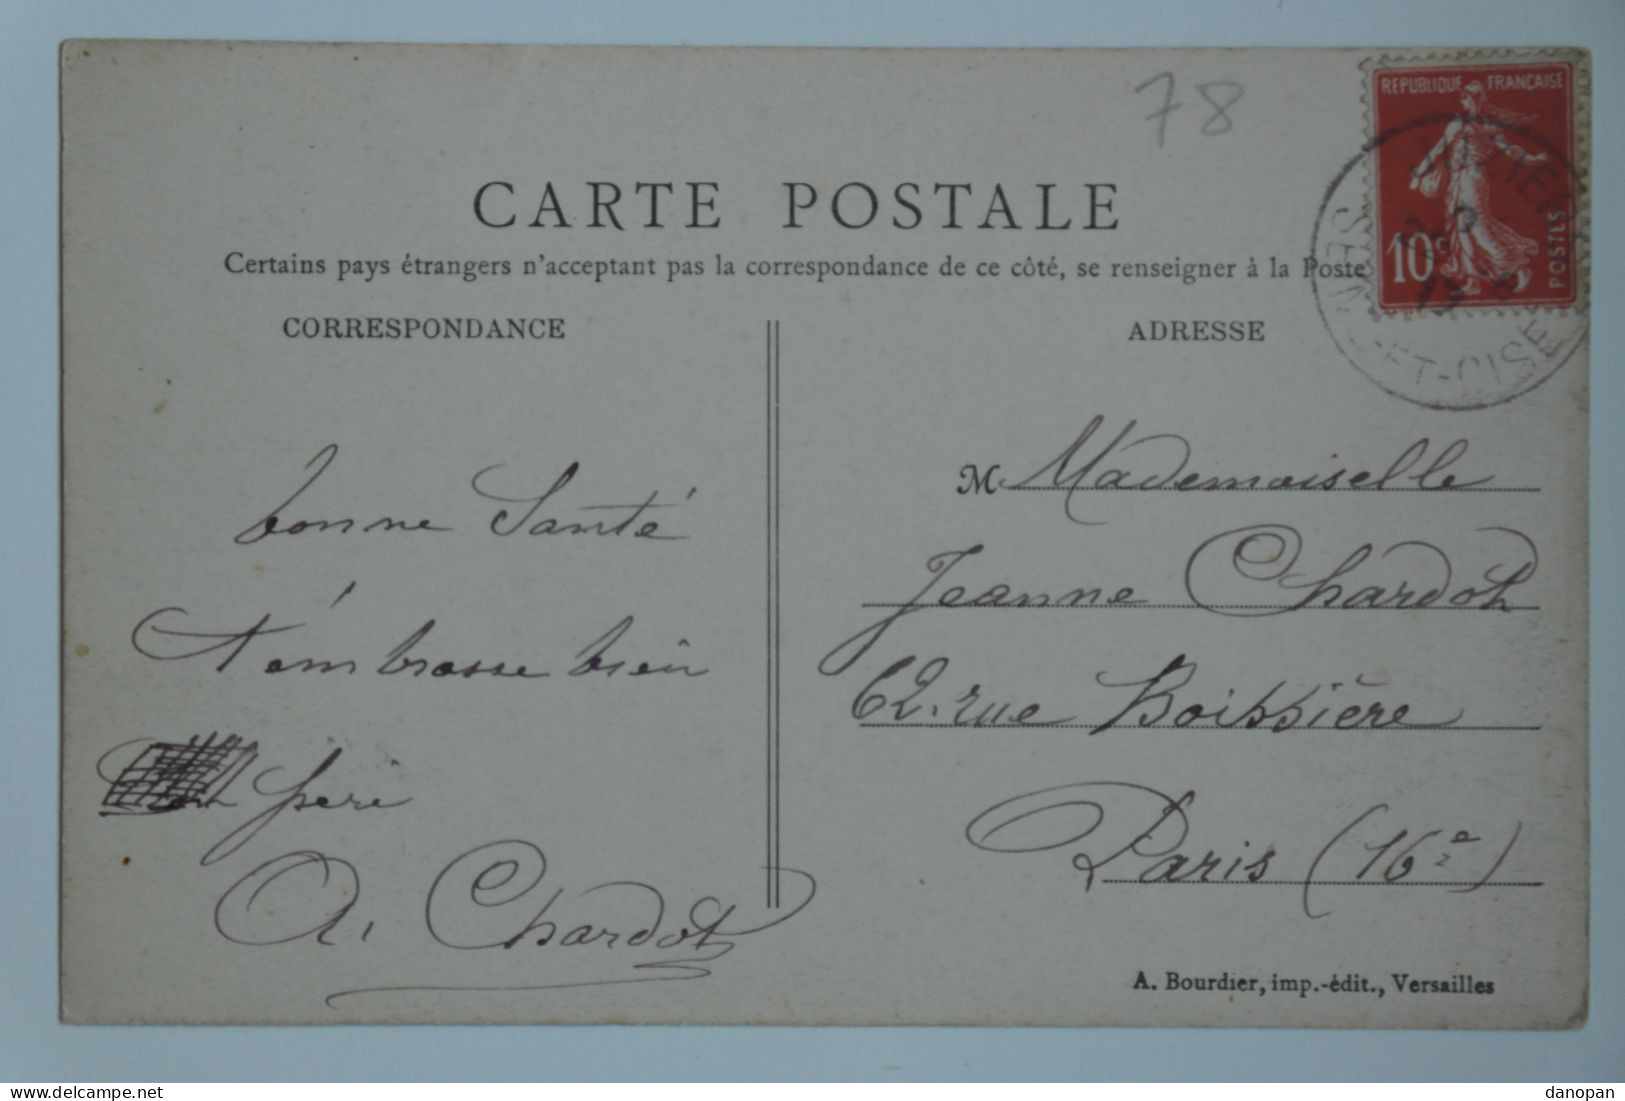 78
REPUBLIQUE FRANÇAISE
10c
POSTES
SEINE-ET-OISE
CARTE POSTALE
Certains pays étrangers n'acceptant pas la correspondance de ce côté, se renseigner à la Poste
CORRESPONDANCE
ADRESSE
bonne Santé
t'embrasse bien
père
A. Chardot
M. Mademoiselle
Jeanne Chardot
62. rue Boissière
Paris (16e)
A. Bourdier, imp.-édit., Versailles
www.delcampe.net
danopan